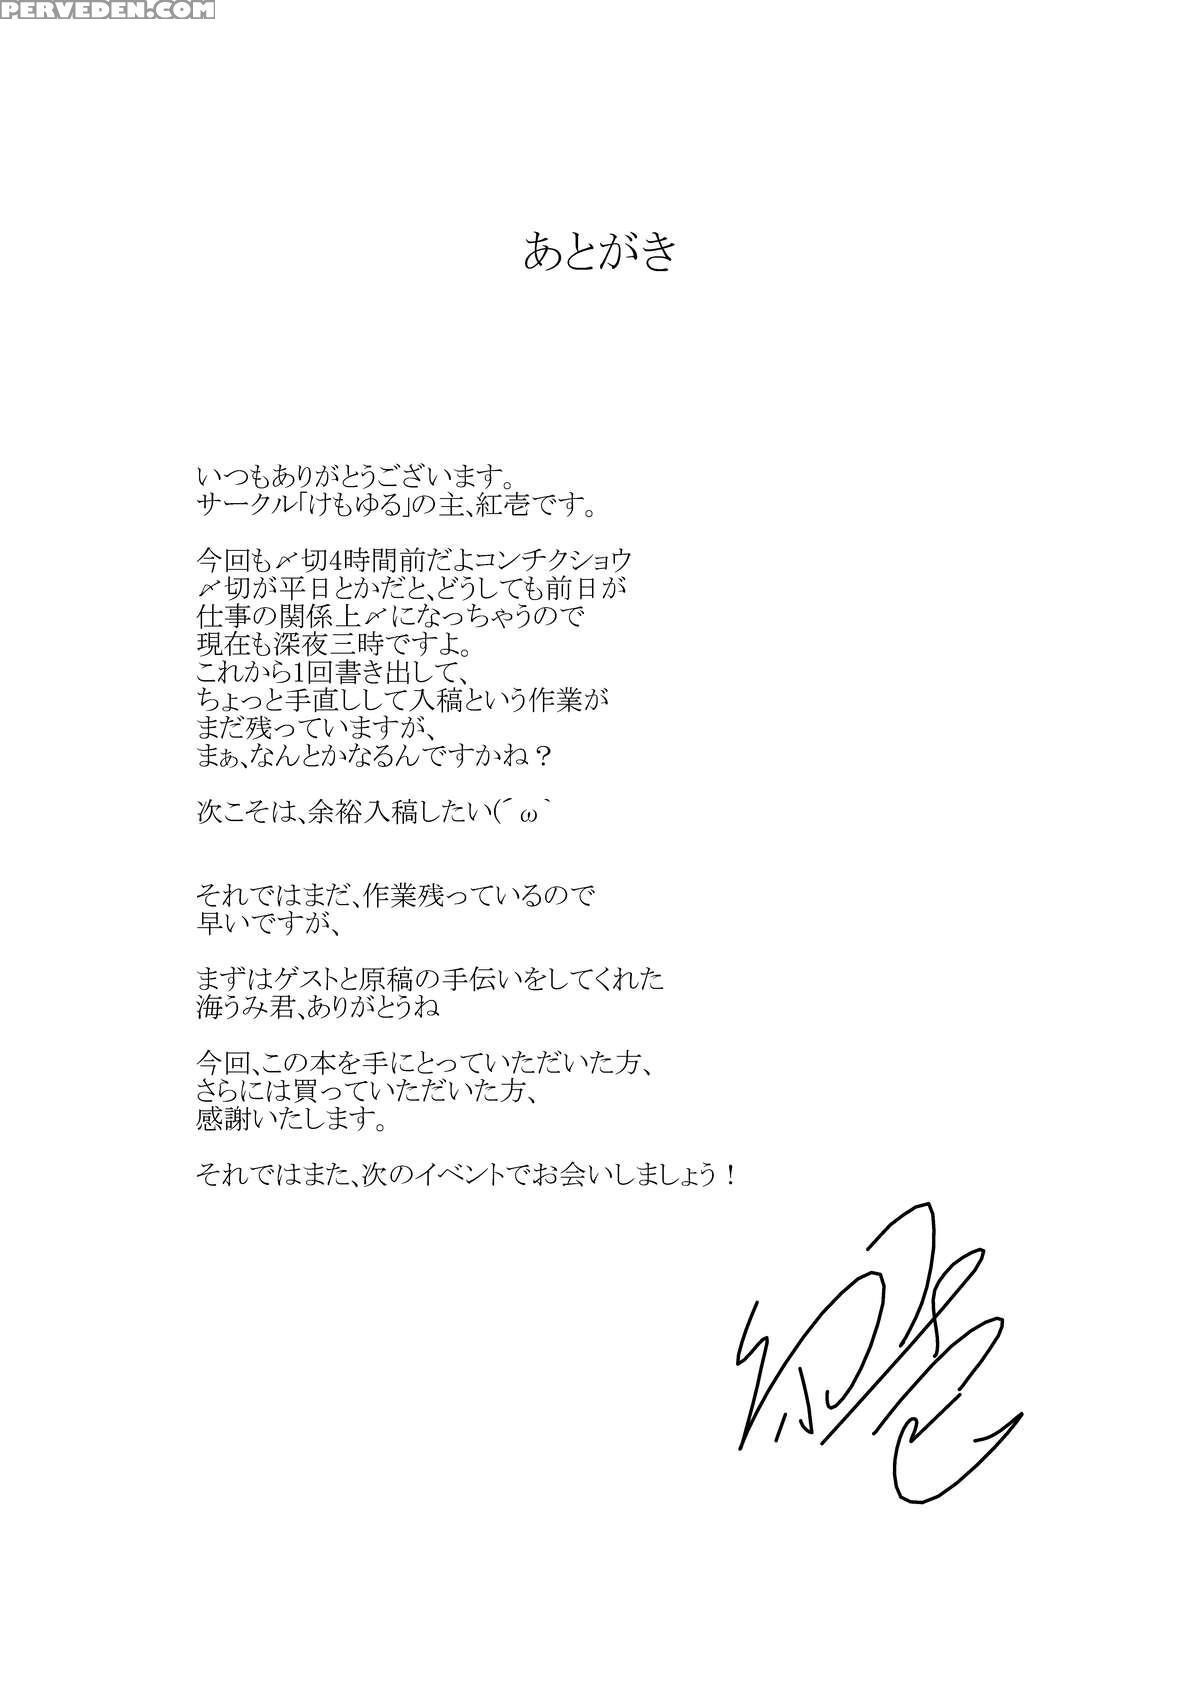 PERVEDEN.COM
あとがき
いつもありがとうございます。
サークル「けもゆる」の主、紅壱です。
今回も〆切4時間前だよコンチクショウ
〆切が平日とかだと、どうしても前日が
仕事の関係上〆になっちゃうので
現在も深夜三時ですよ。
これから1回書き出して、
ちょっと手直しして入稿という作業が
まだ残っていますが、
まぁ、なんとかなるんですかね？
次こそは、余裕入稿したい(´ω｀
それではまだ、作業残っているので
早いですが、
まずはゲストと原稿の手伝いをしてくれた
海うみ君、ありがとうね
今回、この本を手にとっていただいた方、
さらには買っていただいた方、
感謝いたします。
それではまた、次のイベントでお会いしましょう！
紅壱